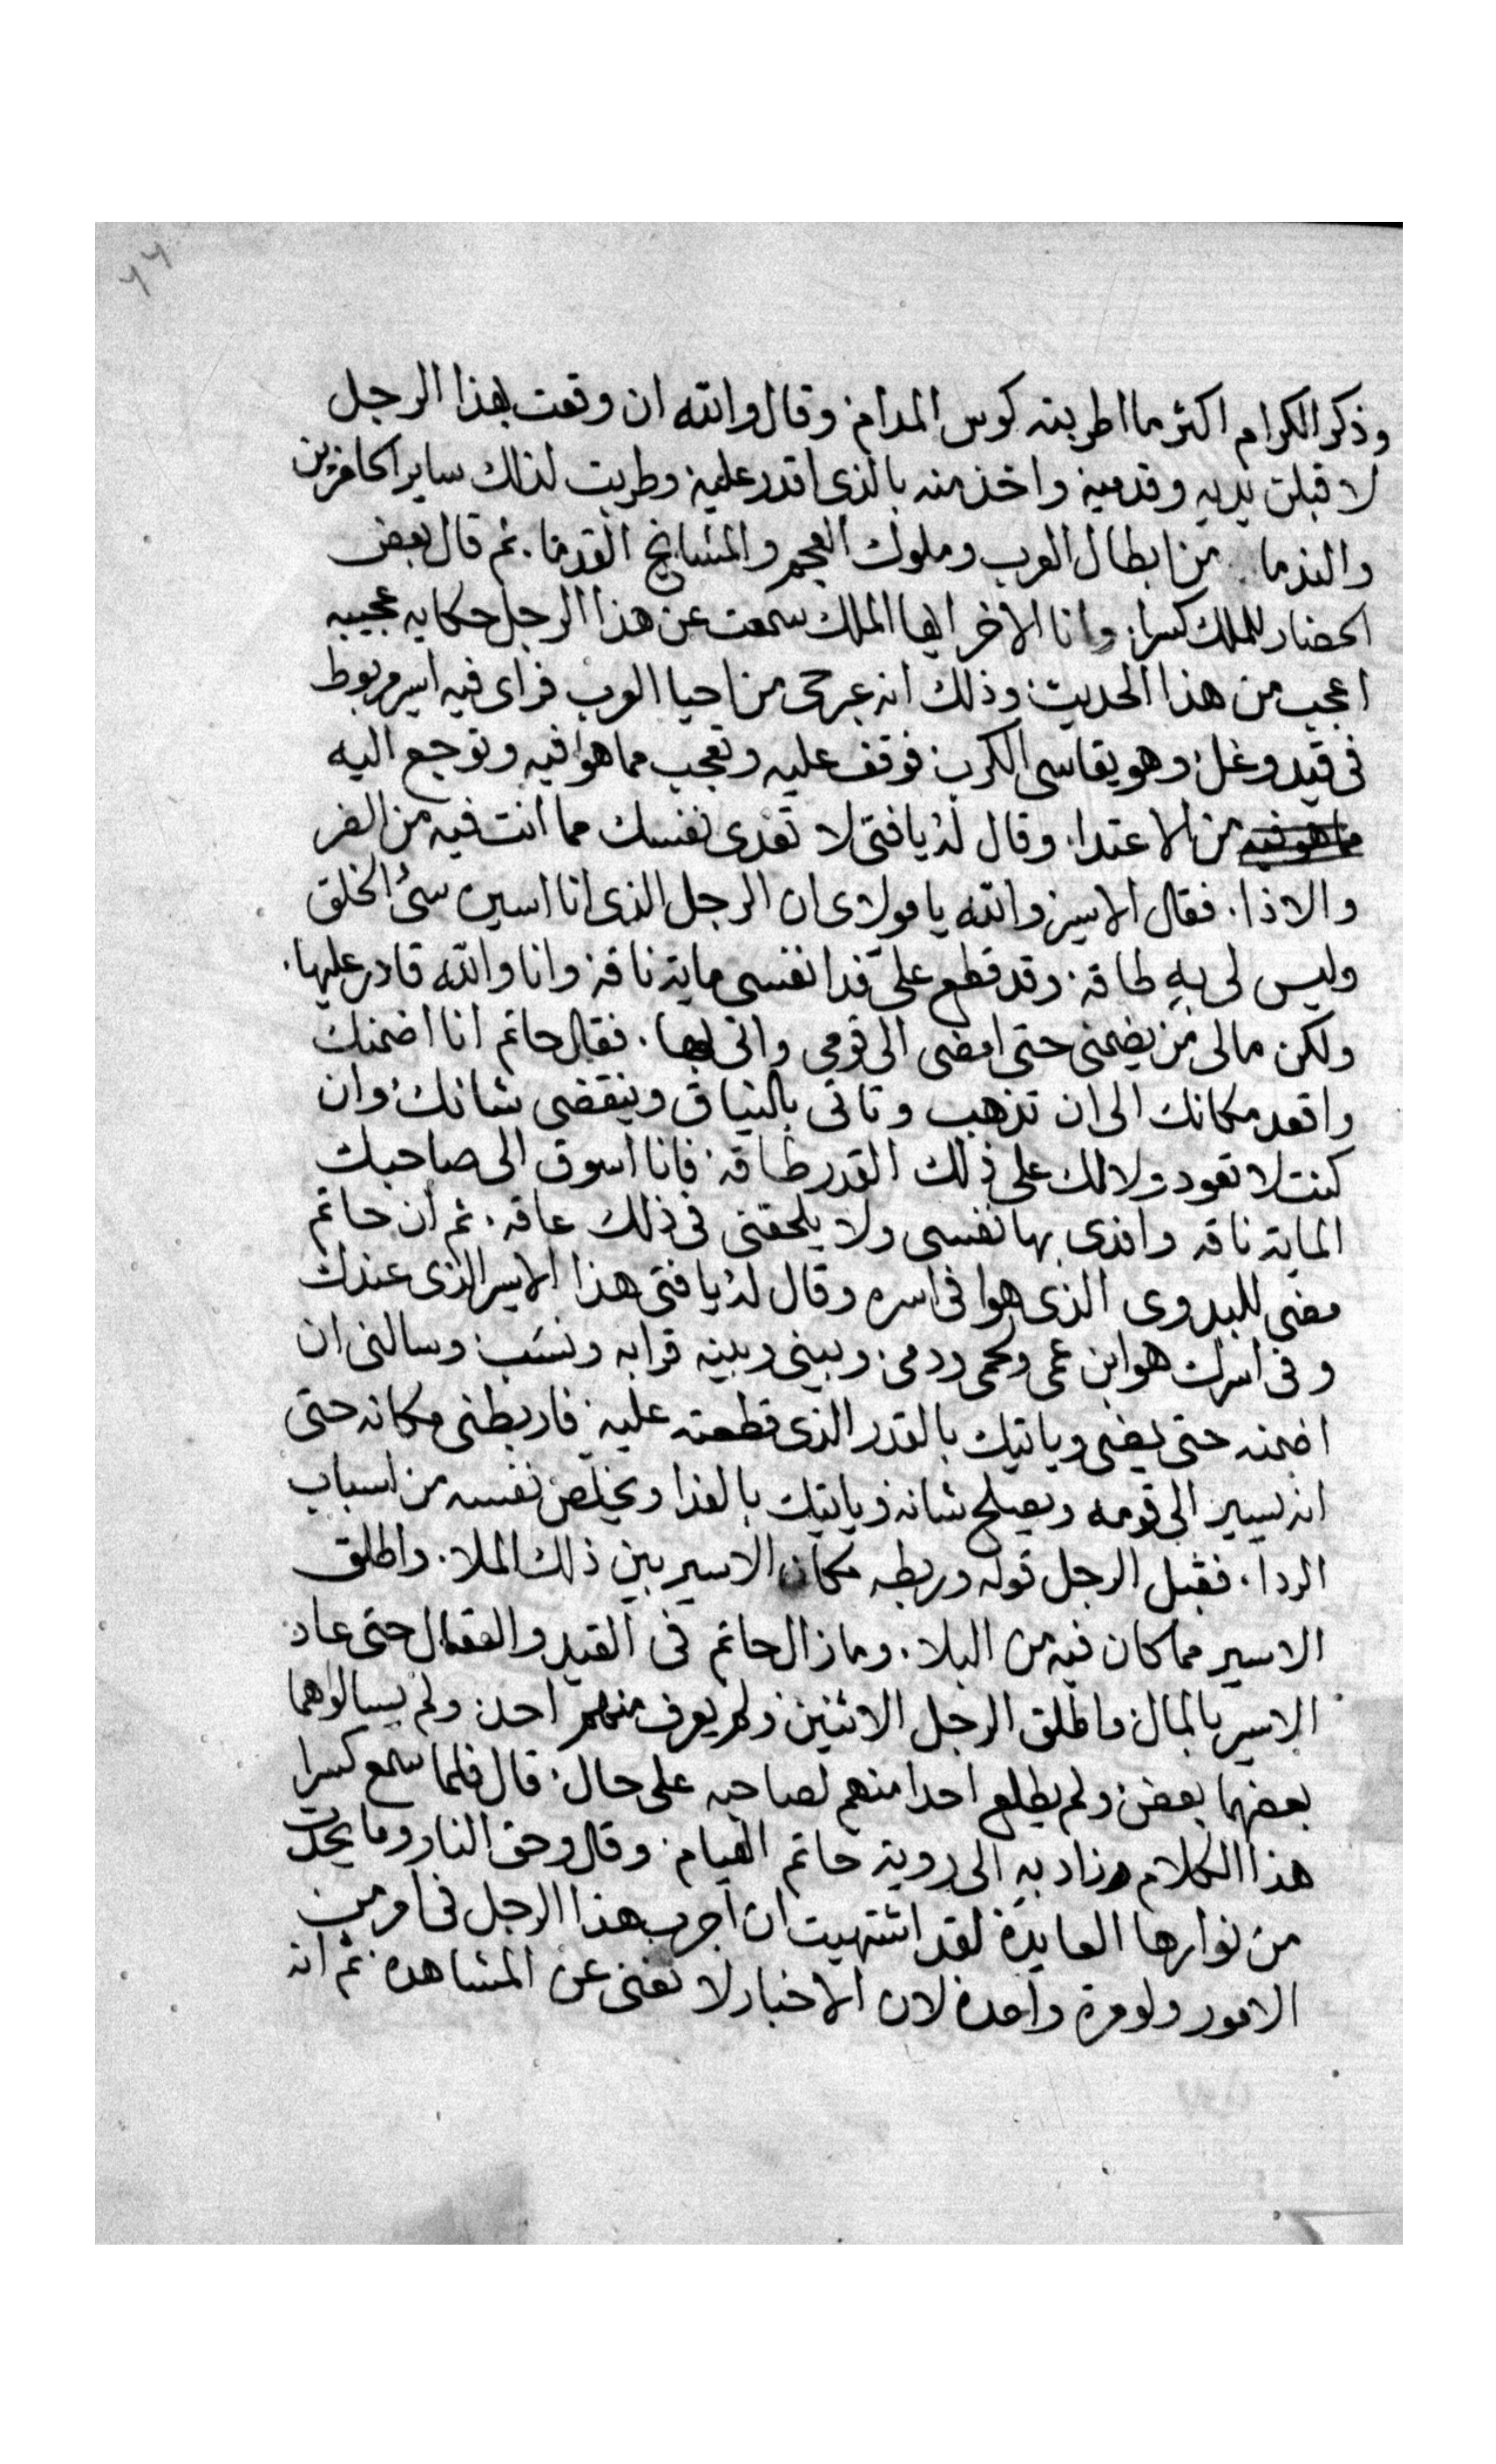 ٢٦
وذكر الكرام اكثر مما اطربته كوس المدام وقال والله ان وقعت بهذا الرجل
لا قبلن يديه وقدميه واخدمنه بالذى اقدر عليه وطربت لذلك ساير الحاضرين
والندما من ابطال العرب وملوك العجم والمشايخ القدما. ثم قال بعض
الحضار للملك كسرا. وانا الاخر ايها الملك سمعت عن هذا الرجل حكايه عجيبه
اعجب من هذا الحديث وذلك انه عبر حى من احيا العرب فراى فيه اسير مربوط
فى قيد وغل وهو يقاسى الكرب فوقف عليه وتعجب مما هوا فيه وتوجع اليه
ما هو فيه من الاعتدا. وقال له يا فتى لا تفدى نفسك مما انت فيه من الضر
والاذا. فقال الاسير والله يا مولاى ان الرجل الذى انا اسيره سئ الخلق
وليس لى به طاقه. وقد قطع على فدا نفسى ماية ناقه وانا والله قادر عليها.
ولكن مالى من يضمنى حتى امضى الى قومى واتى بها. فقال حاتم انا اضمنك
واقعد مكانك الى ان تذهب وتاتى بالنياق وينقضى شانك وان
كنت لا تعود ولا لك على ذلك القدر طاقه فانا اسوق الى صاحبك
الماية ناقه وافدى بها نفسى ولا يلحقنى فى ذلك عاقه. ثم ان حاتم
مضى للبدوى الذى هوا فى اسره وقال له يا فتى هذا الاسير الذى عندك
وفى اسرك هو ابن عمى ولحمى ودمى. وبينى وبينه قرابه ونسب وسالنى ان
اضمنه حتى يمضى وياتيك بالقدر الذى قطعته عليه فاربطنى مكانه حتى
انه يسير الى قومه ويصلح شانه وياتيك بالفدا ويخلص نفسه من اسباب
الردا. فقبل الرجل قوله وربطه مكان الاسير بين ذلك الملا. واطلق
الاسير مما كان فيه من البلا. وما زال حاتم فى القيد والعقال حتى عاد
الاسير بالمال واطلق الرجل الاثنين ولم يعرف منهم احد ولم يسالوهما
بعضهما بعض ولم يطلع احدا منهم لصاحبه على حال. قال فلما سمع كسرا
هذا الكلام وزاد به الى روية حاتم الهيام. وقال وحق النار وما يحدث
من نوارها العايدة لقد اشتهيت ان اجرب هذا الرجل فى امر من
الامور ولو مرة واحدة لان الاخبار لا تغنى عن المشاهده ثم انه